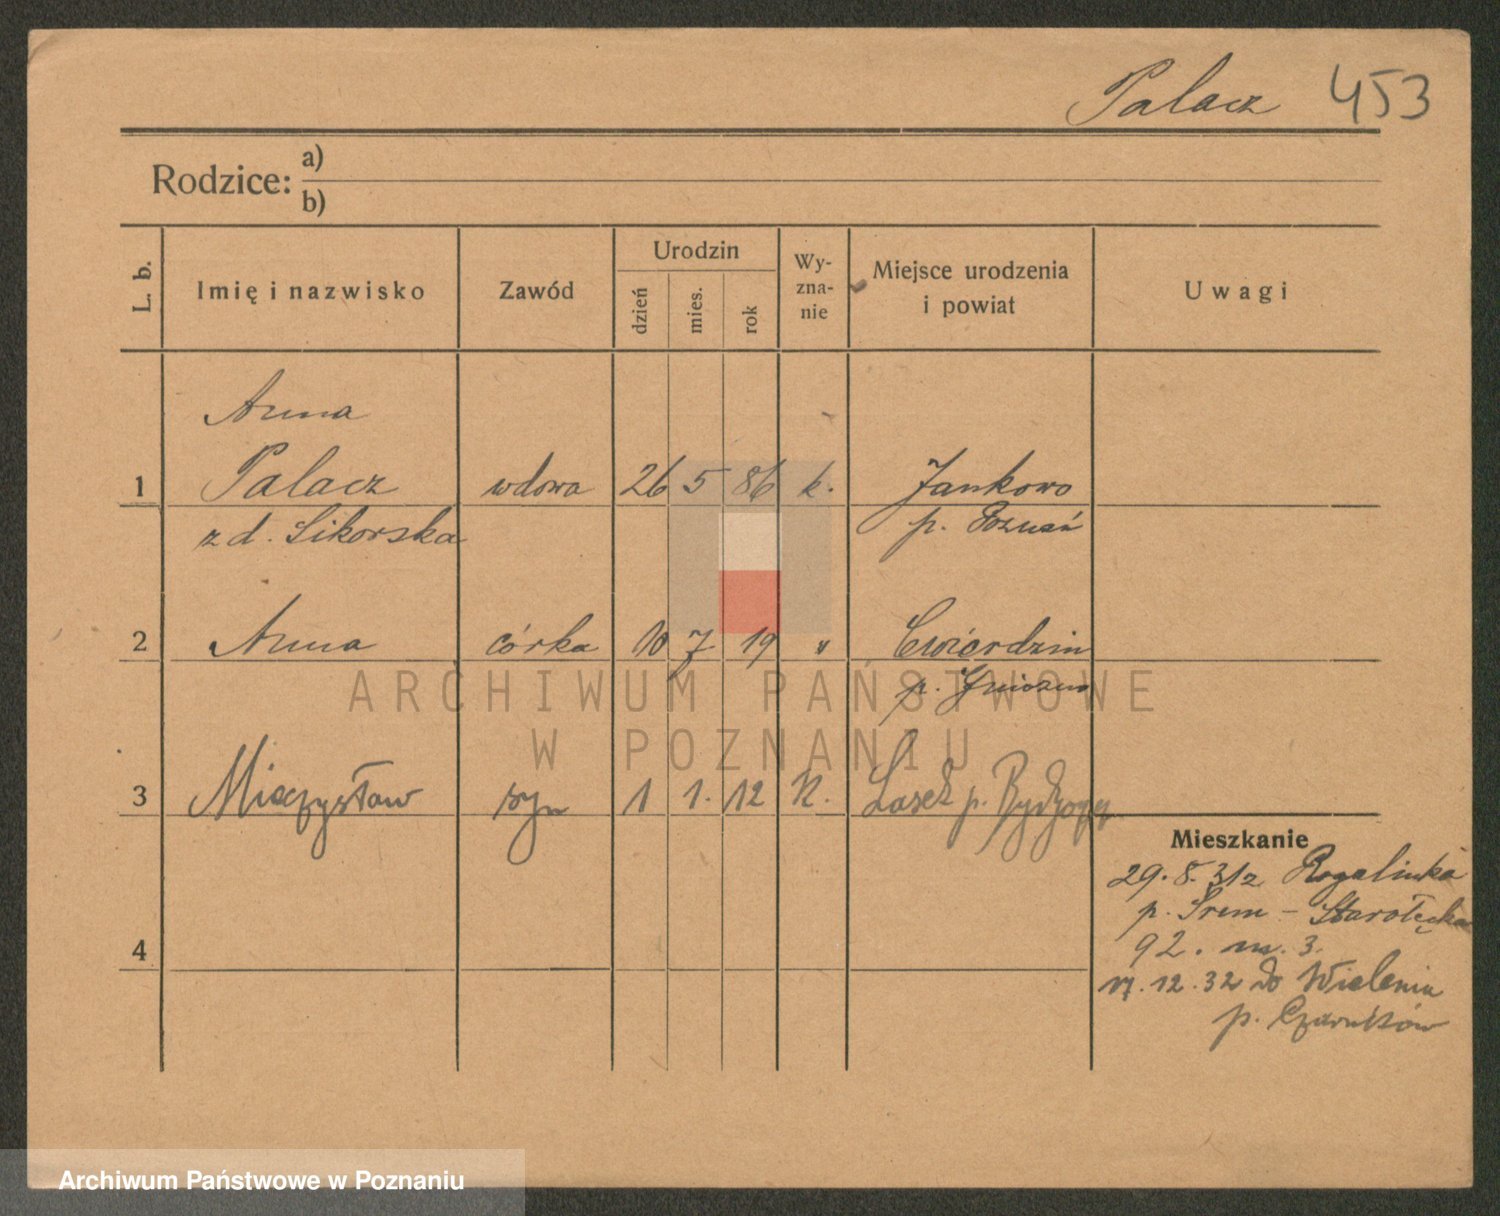 Palacz 453
Rodzice: a)
b)
L. b. Imię i nazwisko Zawód Urodzin dzień mies. rok Wy-zna-nie Miejsce urodzenia i powiat Uwagi
Anna
1 Palacz wdowa 26 5 86 k. Jankowo
z d. Sikorska p. Poznań
2 Anna córka 10 7 19 " Cwierdzin
p. Gniezno
3 Mieczysław syn 1 1. 12 K. Lasek p. Bydgoszcz
Mieszkanie
29. 8. 31 z Rogalinka
p. Śrem - Starołęcka
4 92. m. 3.
17. 12. 32 do Wielenia
p. Czarnków
ARCHIWUM PAŃSTWOWE
W POZNANIU
Archiwum Państwowe w Poznaniu